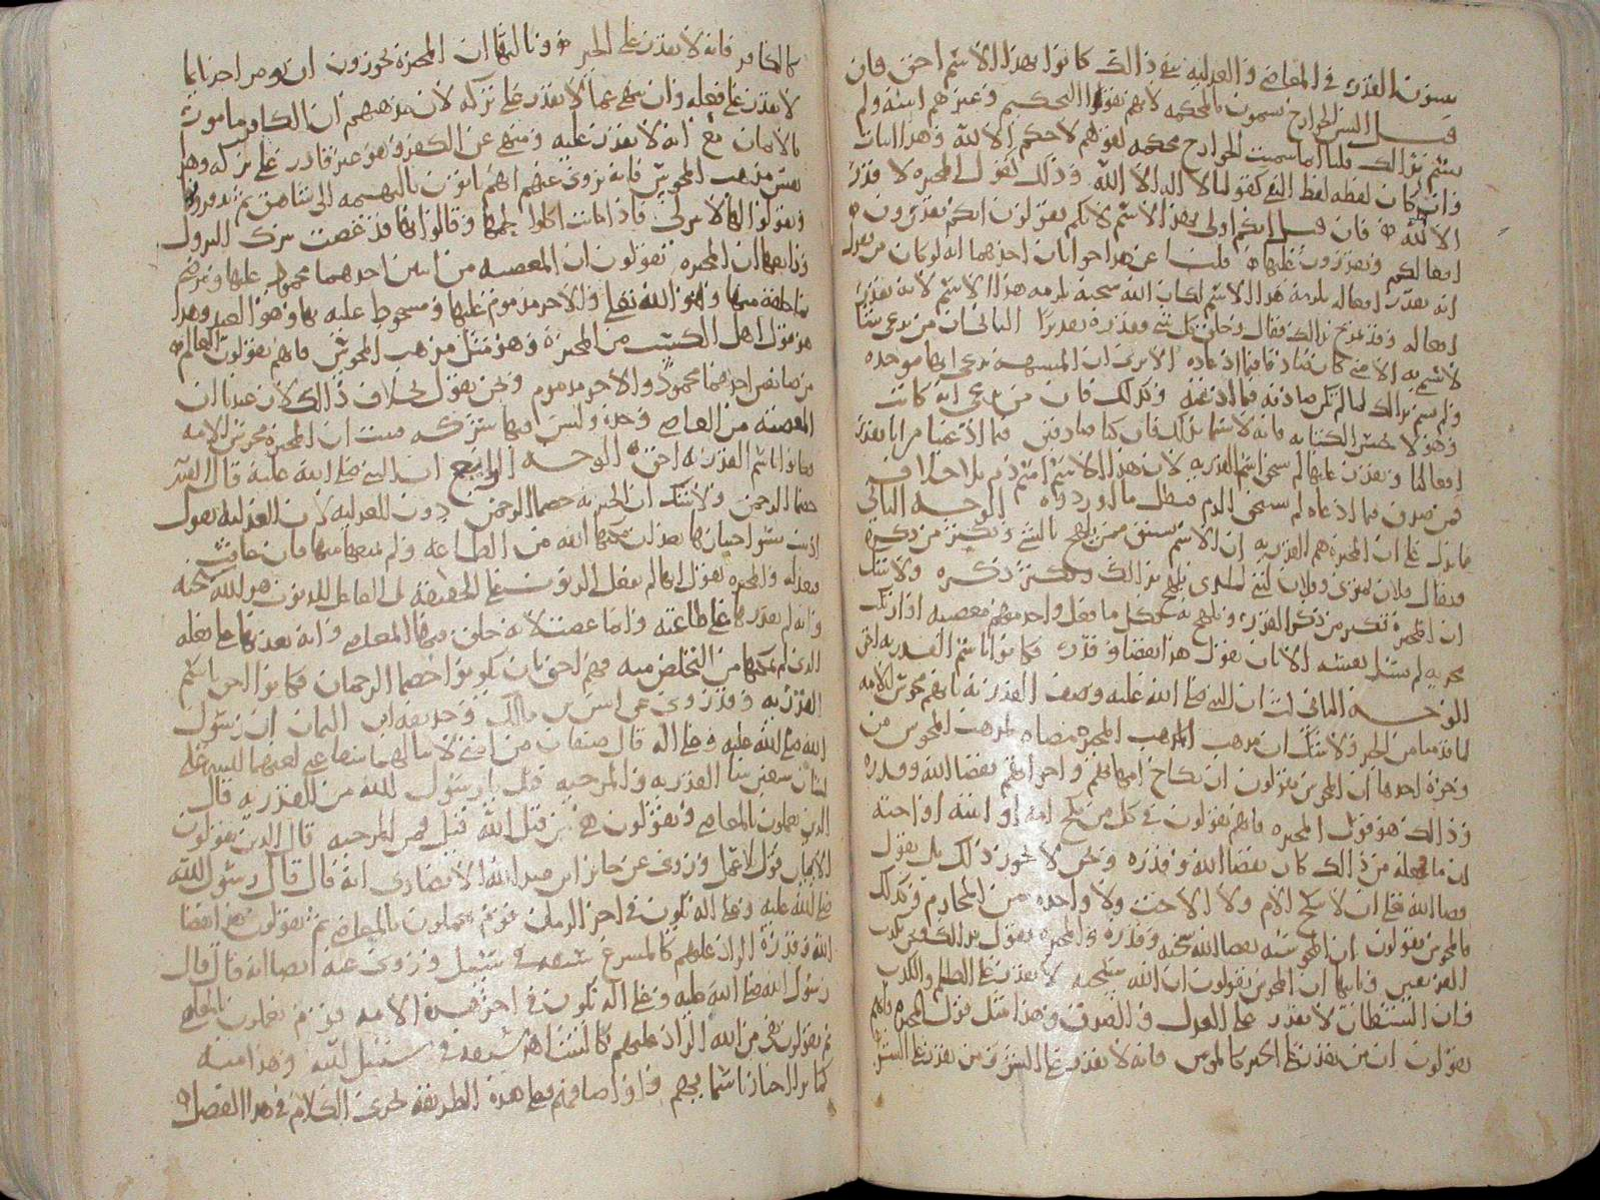 يسبون القدر في المعاصي والعدلية بنفي ذلك كانوا بهذا الاسم احق فان
قيل اليس الخوارج يسمون بالمحكمة لانهم نفوا التحكيم وغيرهم اثبته ولم
يسم بذلك قلنا انما سميت الخوارج محكمة لقولهم لا حكم الا لله وهذا اثبات
وان كان لفظه لفظ النفي كقولنا لا اله الا الله وذلك كقول المجبرة لا قدر
الا لله فان قيل انكم اولى بهذا الاسم لانكم تقولون انكم تقدرون
افعالكم وتقدرون عليها قلنا عن هذا جوابان احدهما انه لو كان من يقول
انه يقدر افعاله يلزمه هذا الاسم لكان الله سبحانه يلزمه هذا الاسم لانه يقدر
افعاله وقد تمدح بذلك فقال وخلق كل شي فقدره تقديرا الثاني ان من يدعي شيا
لا يسمى به الا متى كان صادقا فيما ادعاه الا ترى ان المشبهة تدعي انها موحدة
ولم تسم بذلك لما لم تكن صادقة فيما ادعته وكذلك فان من يدعي انه كاتب
وهو لا يحسن الكتابة فانه لا يسمى بذلك فان كنا صادقين فيما ادعينا من انا نقدر
افعالنا ونقدر عليها لم نستحق اسم القدرية لان هذا الاسم اسم ذم بلا خلاف
فمن صدق فيما ادعاه لم يستحق الذم فبطل ما اوردوه الوجه الثاني
مما يدل على ان المجبرة هم القدرية ان الاسم يشتق ممن يلهج بالشي ويكثر من ذكره
فيقال فلان تمري وفلان لبني لمن يلهج بذلك ويكثر ذكره ولا شك
ان المجبرة تكثر من ذكر القدر وتلهج به فكل ما فعل واحد منهم معصية او ارتكب
جريمة لم ينسبها الى نفسه الا بان يقول هذا بقضا وقدر فكانوا باسم القدرية احق
الوجه الثالث ان النبي صلى الله عليه وصف القدرية بانهم مجوس الامة
لما قدمنا من الخبر ولا شك ان مذهب المجبرة مضاه لمذهب المجوس من
وجوه احدها ان المجوس يقولون ان نكاح امهاتهم واخواتهم بقضا الله وقدره
وذلك هو قول المجبرة فانهم يقولون في كل من نكح امه او ابنته او اخته
ان ما فعله من ذلك كان بقضا الله وقدره ونحن لا نجوز ذلك بل نقول
قضا الله تعالى ان لا ينكح الام ولا الاخت ولا واحدة من المحارم وكذلك
فالمجوس يقولون ان المجوسية بقضا الله سبحانه وقدره والمجبرة تقول بذلك
وثانيها ان المجوس يقولون ان الله سبحانه لا يقدر على الظلم والكذب
وان الشيطان لا يقدر على العدل والصدق وهذا مثل قول المجبرة فانهم
يقولون ان من يقدر على الخير كالمومن فانه لا يقدر على الشر ومن يقدر على الشر
كالكافر فانه لا يقدر على الخير وثالثها ان المجبرة يجوزون ان يومر احدنا بما
لا يقدر على فعله وان ينهى عما لا يقدر على تركه لان مذهبهم ان الكافر مامور
بالايمان مع انه لا يقدر عليه ومنهي عن الكفر وهو غير قادر على تركه وهذا
بعض مذهب المجوس فانه يروى عنهم انهم ياتون بالبهيمة الى شاهق ثم
ويقولوا لها لا تنزلي فاذا ماتت اكلوا لحمها وقالوا انها قد عصت بترك النزول
ورابعها ان المجبرة تقولون ان المعصية من اثنين احدهما محمود عليها
وهو الله تعالى والاخر مذموم عليها ومسخوط عليه بها وهو العبد وهذا
هو قول اهل الكسب من المجبرة وهو مثل مذهب المجوس فانهم يقولون العالم
من صانعين احدهما محمود والاخر مذموم ونحن نقول بخلاف ذلك لان عندنا ان
المعصية من العاصي وحده وليس فيها شركة فثبت ان المجبرة مجوس الامة
فكانوا باسم القدرية احق الوجه الرابع ان النبي صلى الله عليه قال القدرية
خصما الرحمن ولا شك ان المجبرة خصما الرحمن دون العدلية لان العدلية تقول
اتيت بسوء اختيارها بعد ان مكنها الله من الطاعة ولم يمنعها منها فان عاقب
فبعدله والمجبرة تقول انها لم تفعل الذنوب على الحقيقة بل الفاعل للذنوب هو الله سبحانه
وانه لم يقدرها على طاعته وانما عصت لانه خلق فيها المعاصي وانه يعذبها على فعله
الذي لم يمكنها من التخلص منه فهم احق بان يكونوا خصما الرحمان فكانوا احق باسم
القدرية وقد روي عن انس بن مالك وحذيفة ابن اليمان ان رسول
الله صلى الله عليه وعلى اله قال صنفان من امتي لا تنالهما شفاعتي لعنهما الله على
لسان سبعين نبيا القدرية والمرجية قيل يا رسول الله من القدرية قال
الذين يعملون بالمعاصي ويقولون هي من قبل الله قيل فمن المرجية قال الذين يقولون
الايمان قول بلا عمل وروي عن جابر ابن عبد الله الانصاري انه قال قال رسول الله
صلى الله عليه وعلى اله يكون في اخر الزمان قوم يعملون بالمعاصي ثم يقولون هذا قضا
الله وقدره الراد عليهم كالمشرع سيفه في سبيل الله وروي عنه ايضا انه قال قال
رسول الله صلى الله عليه وعلى اله يكون في اخر هذه الامة قوم يعملون بالمعاصي
ثم يقولون هي من الله الراد عليهم كالشاهر سيفه في سبيل الله وهذا منبه
كما ترى الاخبار باسمايهم واوصافهم فعلى هذه الطريقة يجري الكلام في هذا الفصل